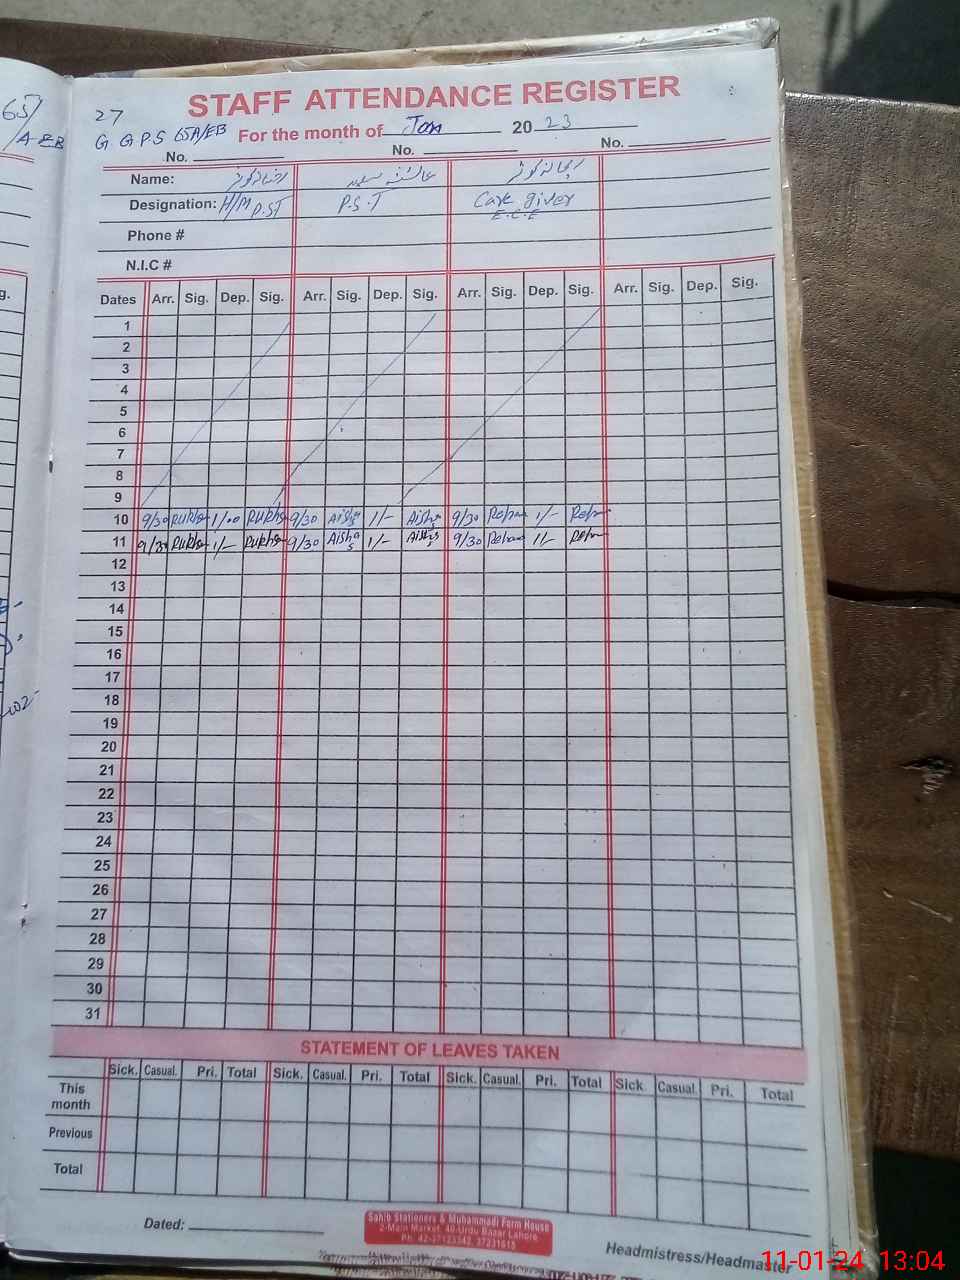 65/
/A EB
27
STAFF ATTENDANCE REGISTER
G G P S 65A/EB For the month of Jan 2023
No. No. No.
Name: رخسانہ کوثر عائشہ سعید ریحانہ کوثر
Designation: H/M P.ST P.S.T Care giver
E.C.E
Phone #
N.I.C #
g. Dates Arr. Sig. Dep. Sig. Arr. Sig. Dep. Sig. Arr. Sig. Dep. Sig. Arr. Sig. Dep. Sig.
1
2
3
4
5
6
7
8
9
10 9/30 Rukhs 1/00 Rukhs 9/30 Aisha S 1/- Aisha S 9/30 Rehan 1/- Rehn
11 9/30 Rukhs 1/- Rukhs 9/30 Aisha S 1/- Aisha S 9/30 Rehan 1/- Rehn
12
13
14
15
16
17
18
19
20
21
22
23
24
25
26
27
28
29
30
31
STATEMENT OF LEAVES TAKEN
Sick. Casual. Pri. Total Sick. Casual. Pri. Total Sick. Casual. Pri. Total Sick. Casual. Pri. Total
This month
Previous
Total
Dated:
Sahib Stationers & Muhammadi Form House
2-Main Market, 40-Urdu Bazar Lahore.
Ph: 42-37123342, 37231615
Headmistress/Headmaster
11-01-24 13:04